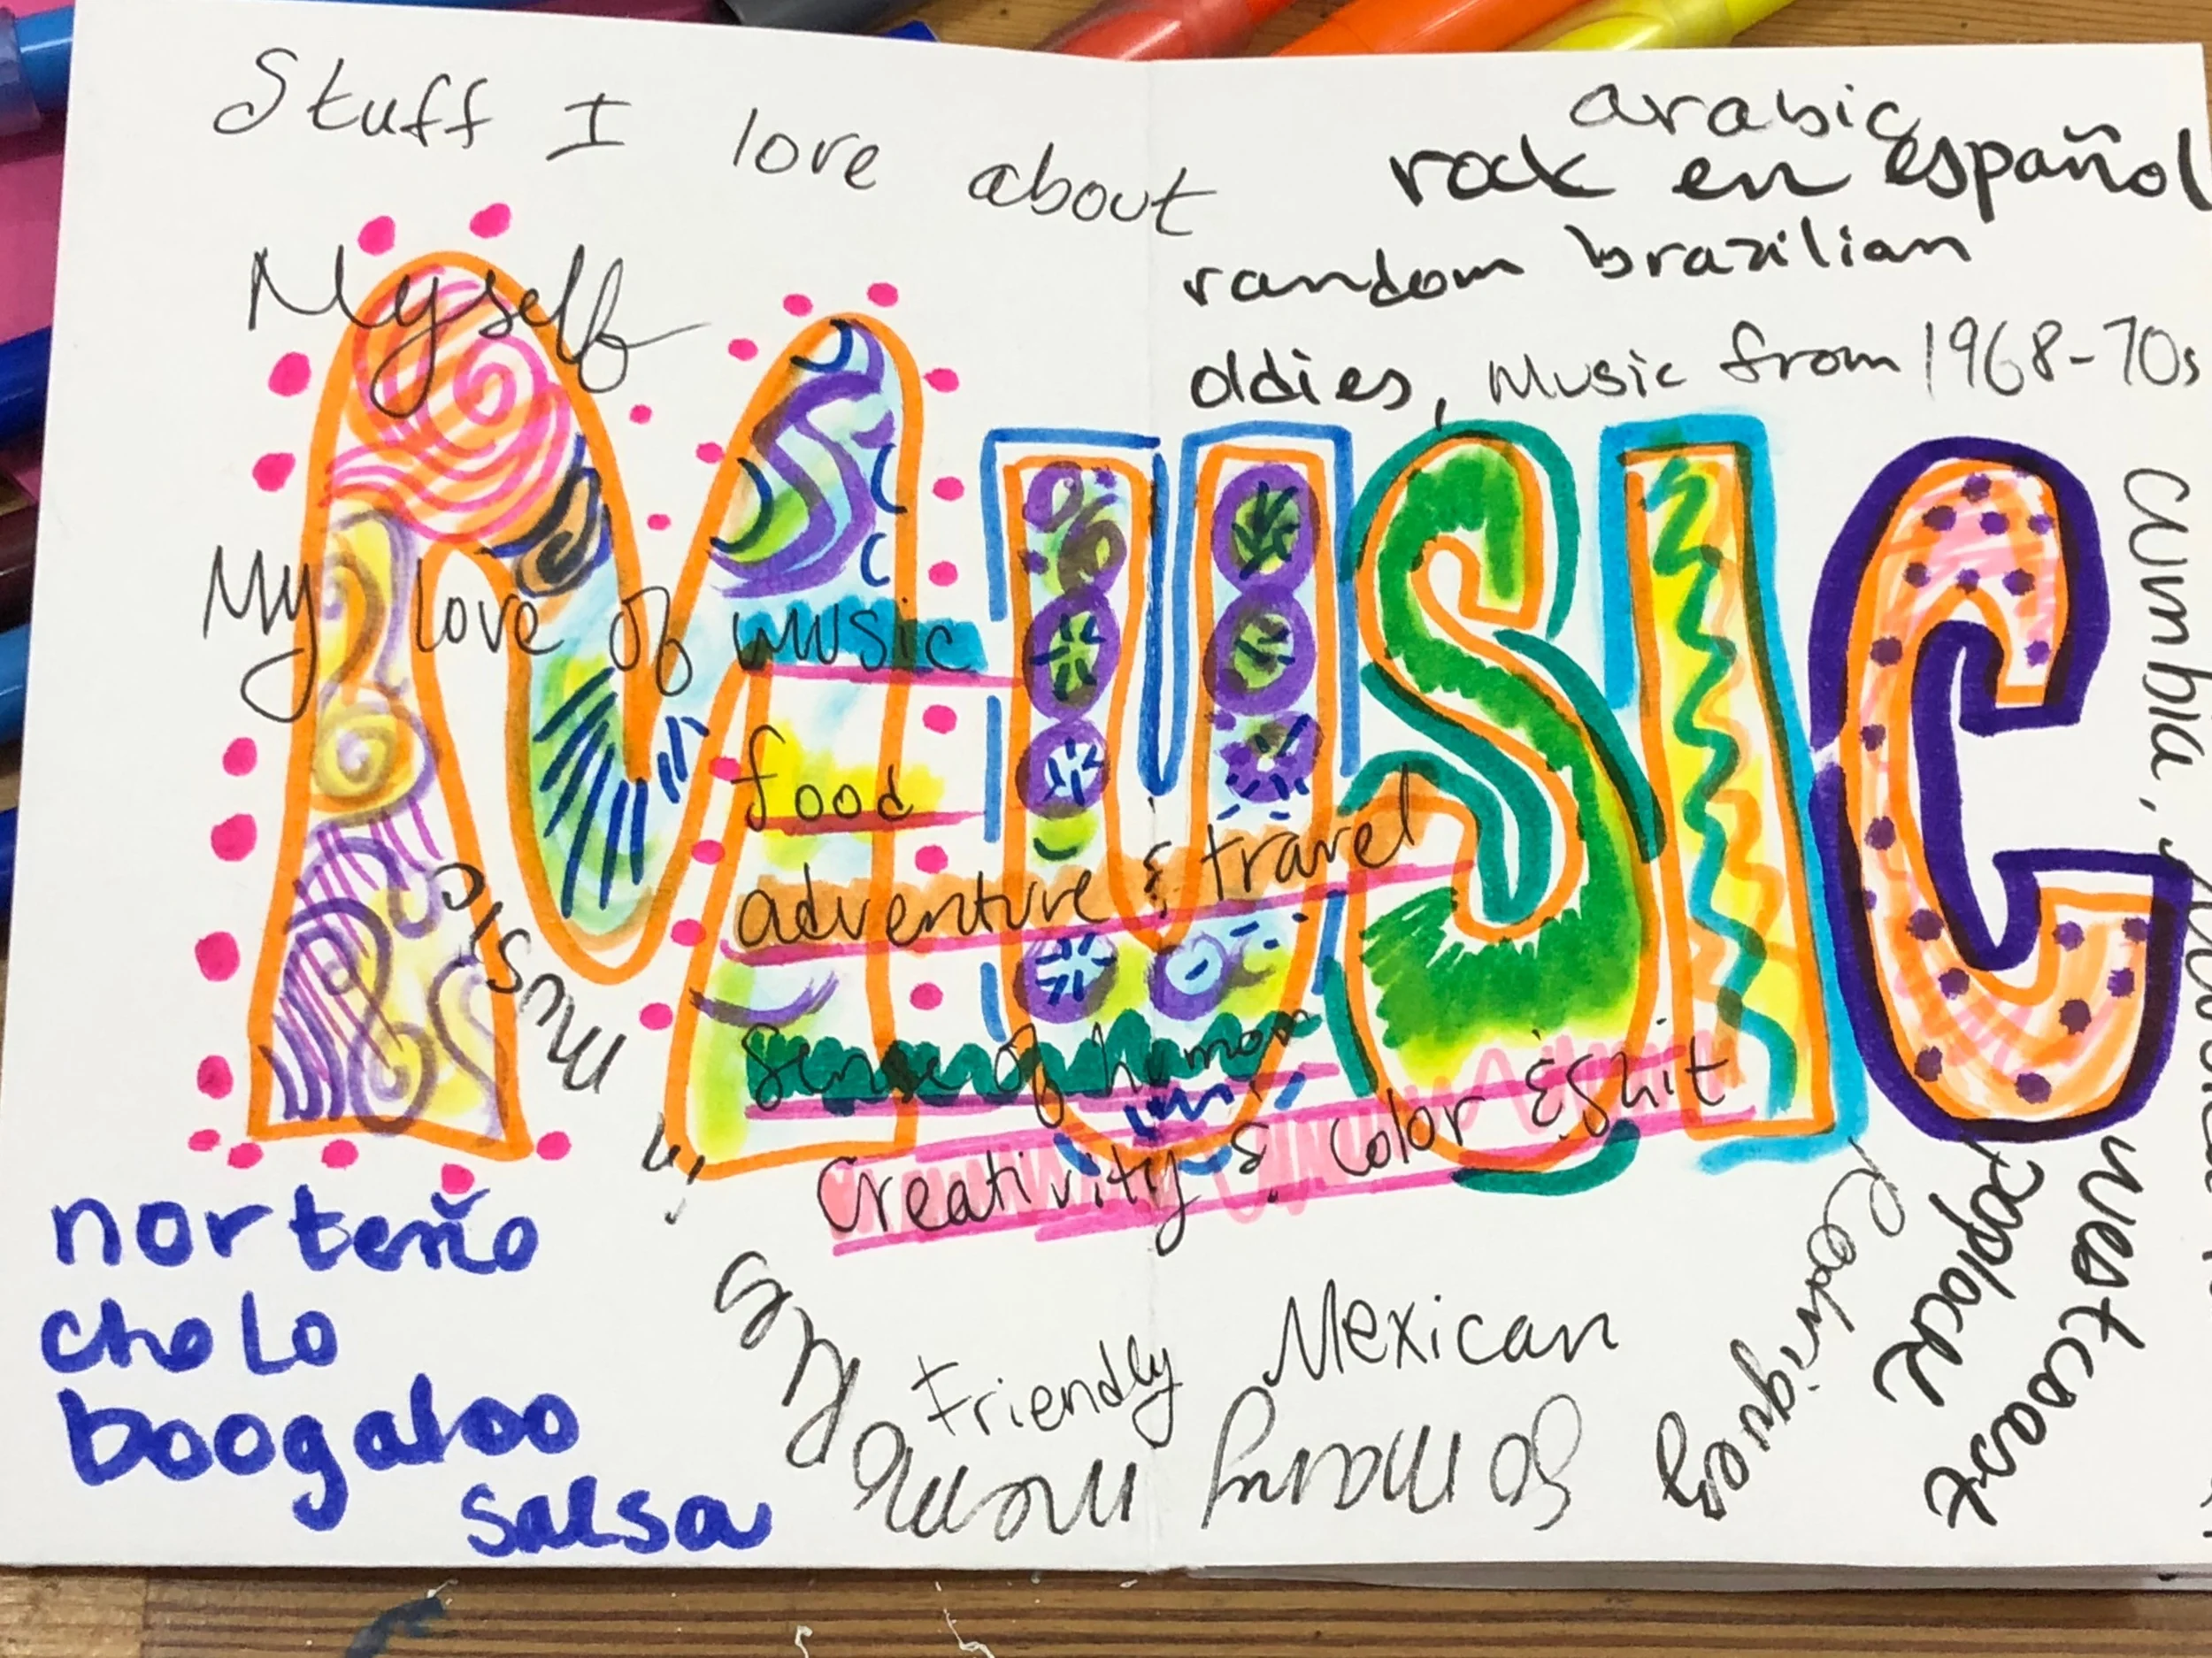 Stuff I love about
Myself
My love of music
food
adventure & travel
sense of humor
Creativity & color & shit
MUSIC
arabic
rock en español
random brazilian
oldies, Music from 1968-70s
cumbia,
westcoast
poplock
Rodriguez
So many
memories
music
Friendly Mexican
norteño
cholo
boogaloo
salsa